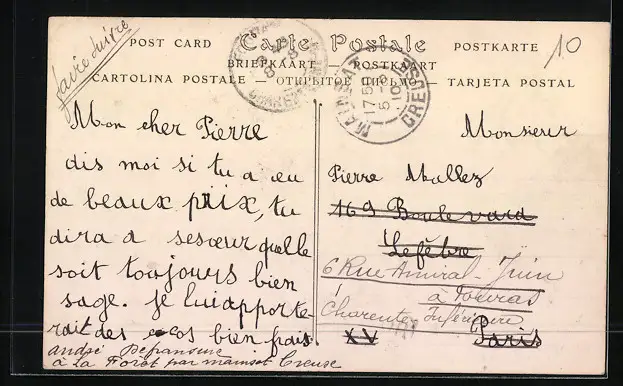 faire suivre
POST CARD Carte Postale POSTKARTE
BRIEFKAART — POSTKORT
CARTOLINA POSTALE — ОТКРЫТОЕ ПИСЬМО — TARJETA POSTAL
10
MAINSAT
17 50
5 - 8
10
CREUSE
Mon cher Pierre
dis moi si tu a eu
de beaux prix, tu
dira a sesœur quelle
soit toujours bien
sage. je lui apporte-
rait des cocos bien frais
andré Defransure
à La Forêt par mainsat Creuse
Monsieur
Pierre Mallez
169 Boulevard
Lefèbre
6 Rue Amiral-Juin
à Fouras
Charente Inférieure
XV Paris